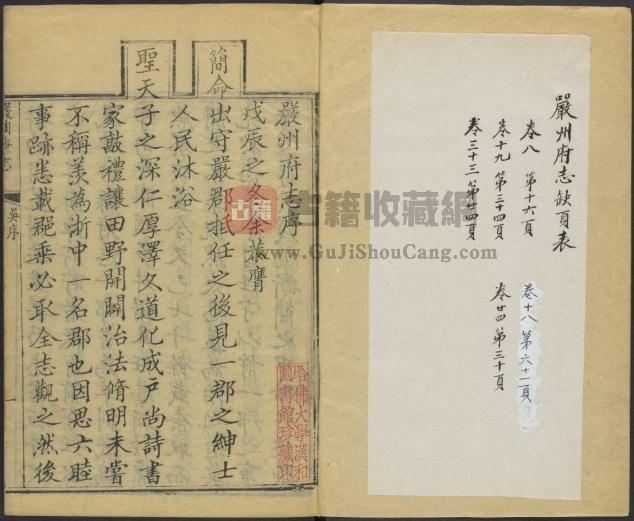 嚴州府志缺頁表
卷八 第十六頁
卷十九 第三十四頁
卷三十三 第廿四頁
卷十八 第六十一頁
卷廿四 第三十頁
嚴州府志序
戊辰之冬余恭膺
簡命出守嚴郡抵任之後見一郡之紳士
人民沐浴
聖天子之深仁厚澤久道化成戶尚詩書
家敦禮讓田野開闢治法脩明未嘗
不稱羨為浙中一名郡也因思六睦
事跡悉載郡乘必取全志觀之然後
嚴州府志
吳序
一
哈佛大學漢和
圖書館珍藏印
古籍
古籍收藏網
www.GuJiShouCang.com